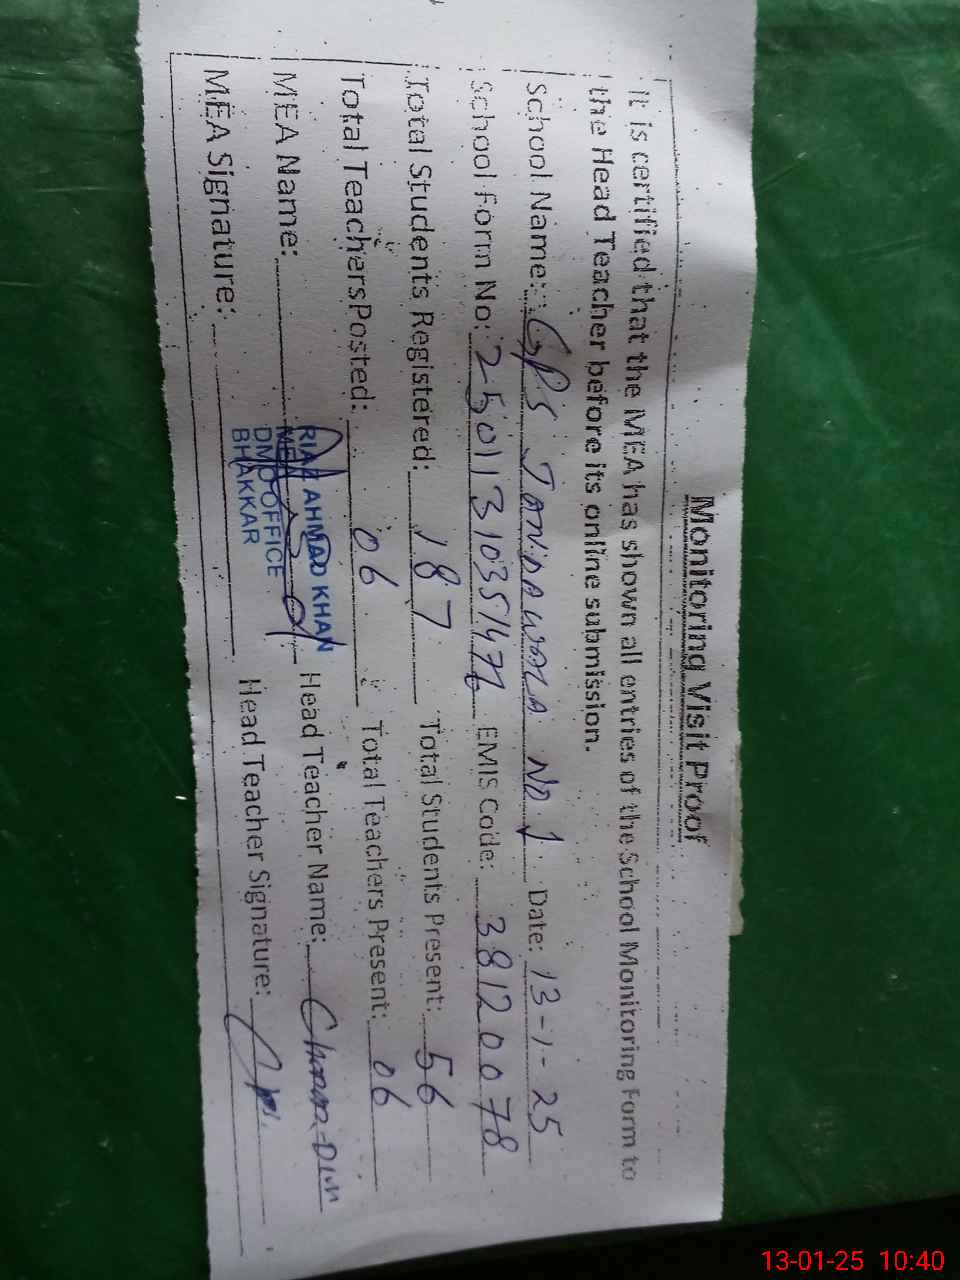 Monitoring Visit Proof
It is certified that the MEA has shown all entries of the School Monitoring Form to
the Head Teacher before its online submission.
School Name: GPS JANDAWALA NO 1 Date: 13-1-25
School Form No: EMIS Code: 38120078
Total Students Registered: 187 Total Students Present: 56
Total TeachersPosted: 06 Total Teachers Present: 06
MEA Name: Head Teacher Name:
RIAZ AHMAD KHAN
MEA
DMO OFFICE
BHAKKAR
MEA Signature: Head Teacher Signature:
13-01-25 10:40